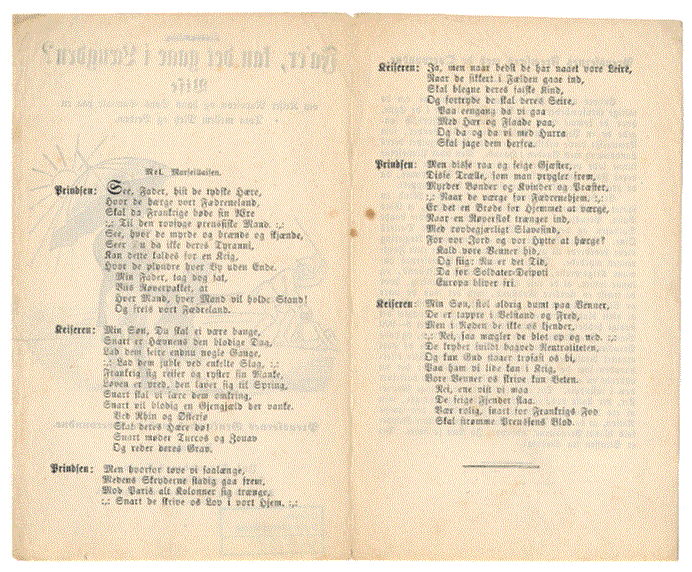 Mel. Marseillaisen.
Prindsen: See, Fader, hist de tydske Hære,
Hvor de hærge vort Fædreneland,
Skal da Frankrige bøde sin Ære
:,: Til den rovsyge preussiske Mand. :,:
See, hvor de myrde og brænde og skjænde,
Seer Du da ikke deres Tyranni,
Kan dette kaldes for en Krig,
Hvor de plyndre hver By uden Ende.
Min Fader, tag dog fat,
Viis Røverpakket, at
Hver Mand, hver Mand vil holde Stand!
Og frels vort Fædreland.
Keiseren: Min Søn, Du skal ei være bange,
Snart er Hævnens den blodige Dag,
Lad dem seire endnu nogle Gange,
:,: Lad dem juble ved enkelte Slag, :,:
Frankrig sig reiser og ryster sin Manke,
Løven er vred, den laver sig til Spring,
Snart skal vi lære dem omkring,
Snart vil blodig en Gjengjæld der vanke.
Ved Rhin og Østersø
Skal deres Hære dø!
Snart møder Turcos og Zouav
Og reder deres Grav.
Prindsen: Men hvorfor tøve vi saalænge,
Medens Skryderne stadig gaa frem,
Mod Paris alt Kolonner sig trænge,
:,: Snart de skrive os Lov i vort Hjem. :,:
Keiseren: Ja, men naar bedst de har naaet vore Leire,
Naar de sikkert i Fælden gaae ind,
Skal blegne deres falske Kind,
Og fortryde de skal deres Seire,
Paa eengang da vi gaa
Med Hær og Flaade paa,
Og da og da vi med Hurra
Skal jage dem herfra.
Prindsen: Men disse raa og feige Gjæster,
Disse Trælle, som man prygler frem,
Myrder Bønder og Kvinder og Præster,
:,: Naar de værge for Fædrenehjem. :,:
Er det en Brøde for Hjemmet at værge,
Naar en Røverflok trænger ind,
Med rovbegjærligt Slavesind,
For vor Jord og vor Hytte at hærge?
Kald vore Venner hid,
Og siig: Nu er det Tid,
Da for Soldater-Despoti
Europa bliver fri.
Keiseren: Min Søn, stol aldrig dumt paa Venner,
De er tappre i Velstand og Fred,
Men i Nøden de ikke os kjender,
:,: Nei, saa mægler de blot op og ned. :,:
De kryber snildt bagved Neutraliteten,
Og kun Gud staaer trofast os bi,
Paa ham vi lide kan i Krig,
Vore Venner os skrive kun Beten.
Nei, ene vist vi maa
De feige Fjender slaa.
Vær rolig, snart for Frankrigs Fod
Skal strømme Preussens Blod.